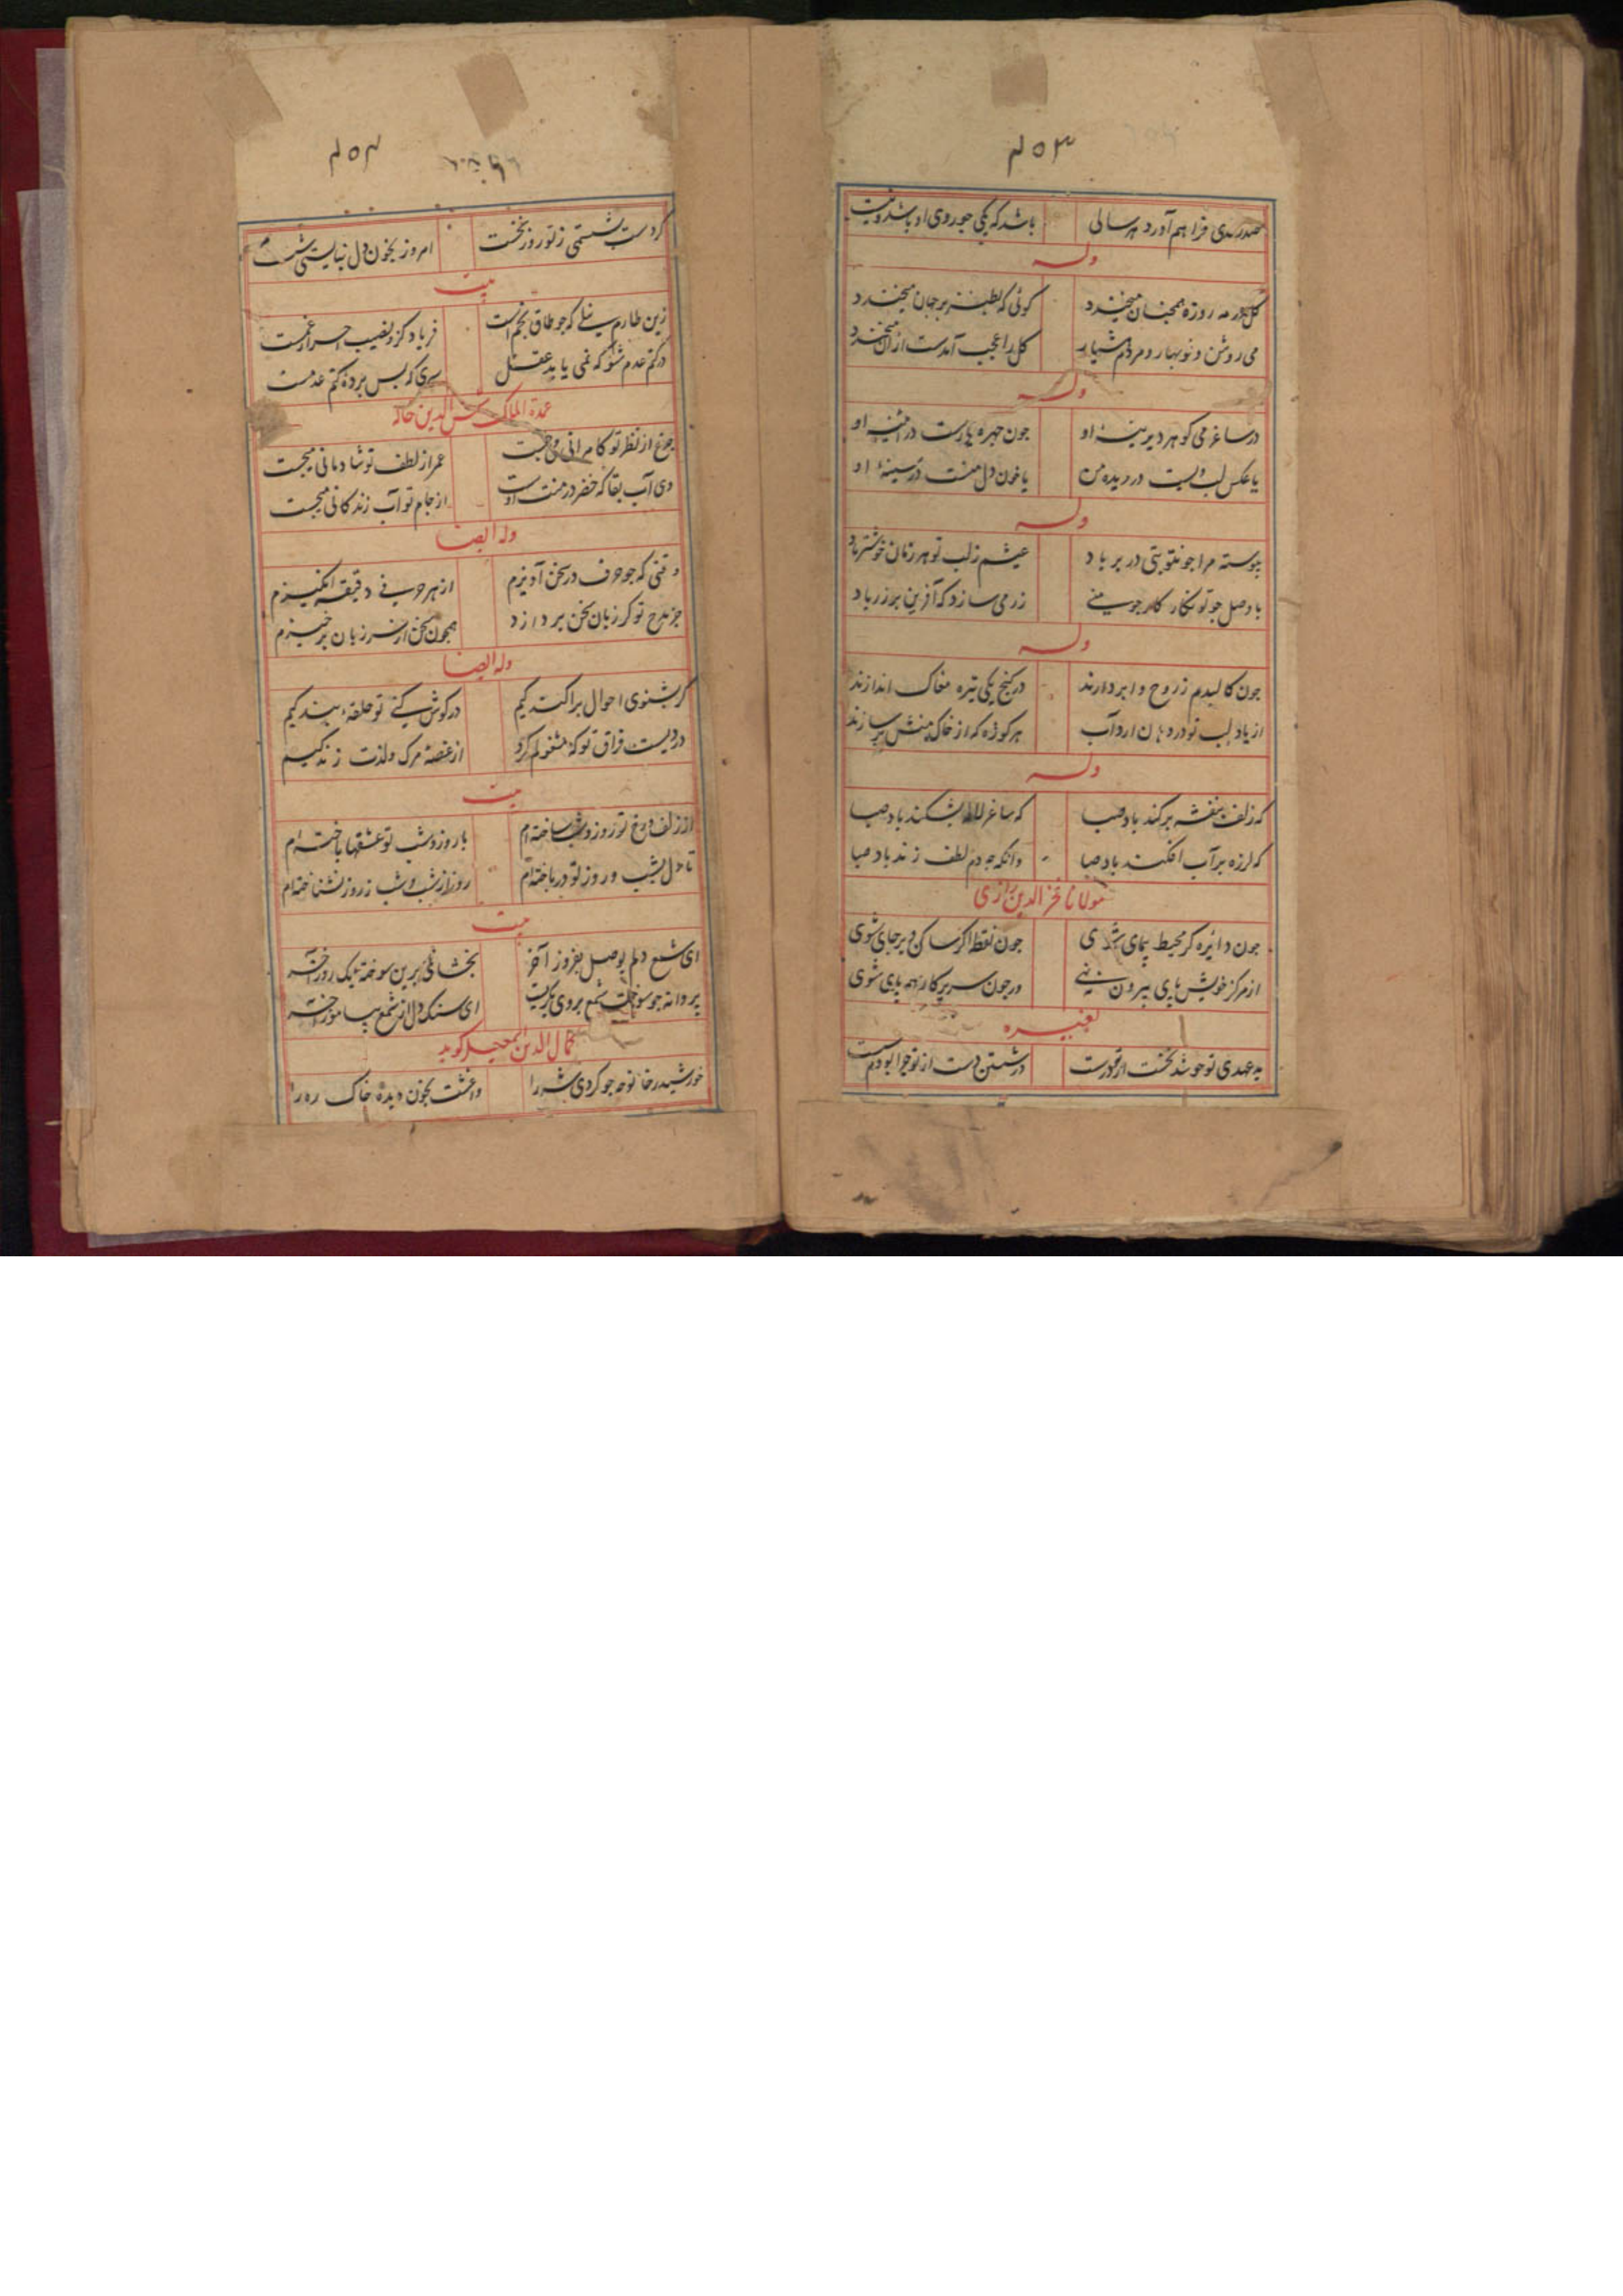 ۴۵۳
صدری فراهم آورد هر سالی باشد که یکی چو روی او باشد و نیست
وله
کل روزه همچنان میخندد کوئی که بطنز بر جهان میخندد
می روشن و نوبهار و مردم هشیار کل را عجب آمدست از ان میخندد
وله
در ساغر می کوهر دیرینهٔ او چون چهره یارست در آئینهٔ او
یا عکس لب تست در دیده من یا خون دل منست در سینهٔ او
وله
پیوسته مرا چو تو بتی در بر باد عیشم ز لب تو هر زمان خوشتر باد
با وصل چو تو نکار کار چو منی زر می سازد که آفرین بر زر باد
وله
چون کالبدم ز روح وا پردازند در کنج یکی تیره مغاک اندازند
از یاد لب تو در دهان ارد آب هر کوزه که از خاک منش بر سازند
وله
که زلف بنفشه برکند باد صبا که ساغر لاله بشکند باد صبا
که لرزه بر آب افکند باد صبا وانکه چه دم لطف زند باد صبا
مولانا فخر الدین رازی
چون دائره کر محیط پیمای شوی چون نقطه اکر ساکن بر جای شوی
از مرکز خویش پای بیرون ننهی ور چون سر پرکار همه پای شوی
لغیره
بد عهدی تو چو شد نخست از تو درست در شستن دست از تو چرا بودم سست
۴۵۴
کر دست بشستمی ز تو روز نخست امروز بخون دل نبایستی شست
بیت
زین طارم نیلی که چو طاق بخم است فریاد کزو نصیب احرار غمست
در کتم عدم شو که نمی یابد عقل سری که پس پردهٔ کتم عدمست
عمدة الملک شمس الدین خاله
چرخ از نظر تو کامرانی میجست عمر از لطف تو شادمانی میجست
وی آب بقا که خضر در منت اوست از جام تو آب زندکانی میجست
وله ایضا
وقتی که چو حرف در سخن آویزم از هر حرفی دقیقه انکیزم
جز مدح تو کر زبان سخن پردازد همچون سخن از سر زبان برخیزم
وله ایضا
کر بشنوی احوال پراکندکیم در کوش کنی تو حلقهٔ بندکیم
دردیست فراق تو که مشغولم کرد از غصهٔ مرک و لذت زندکیم
بیت
از زلف و رخ تو روز و شب ساخته ام با روز و شب تو عشقها باخته ام
تا دل بشب و روز تو در باخته ام روز از شب و شب ز روز نشناخته ام
بیت
ای شمع دلم بوصل بفروز آخر بخشای برین سوخته یک روز آخر
پروانه چو سوخت شمع بر وی بکریست ای سنک دل از شمع بیاموز آخر
کمال الدین اسمعیل کوید
خورشید رخا نوحه چو کردی شه را واغشت بخون دیده خاک ره را